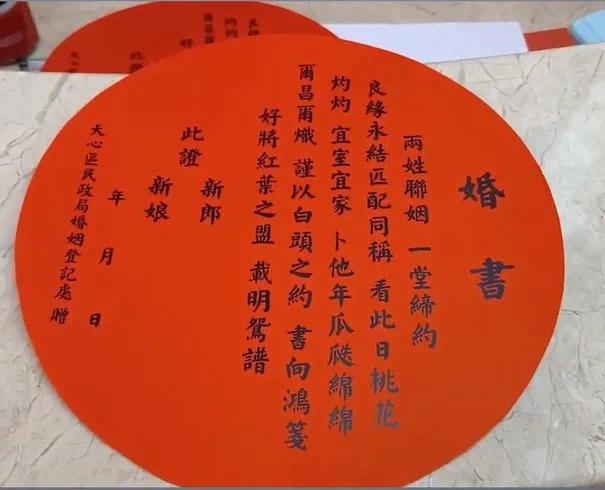 婚書
兩姓聯姻 一堂締約
良緣永結匹配同稱 看此日桃花
灼灼 宜室宜家 卜他年瓜瓞綿綿
爾昌爾熾 謹以白頭之約 書向鴻箋
好將紅葉之盟 載明鴛譜
此證
新郎
新娘
年 月 日
天心區民政局婚姻登記處 贈